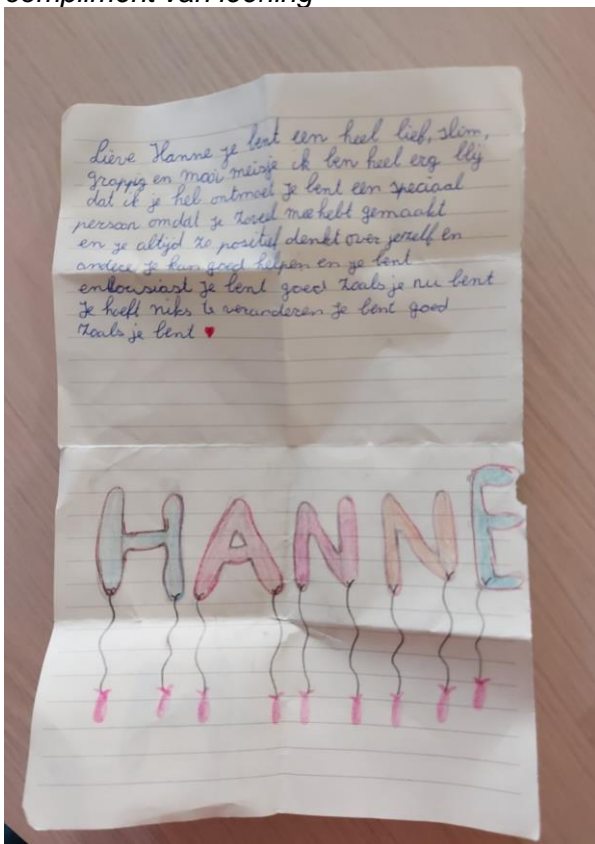 compliment van leerling
Lieve Hanne je bent een heel lief, slim,
grappig en mooi meisje ik ben heel erg blij
dat ik je heb ontmoet Je bent een speciaal
persoon omdat je zoveel mee hebt gemaakt
en je altijd zo positief denkt over jezelf en
andere je kan goed helpen en je bent
entousiast Je bent goed zoals je nu bent
Je hoeft niks te veranderen Je bent goed
zoals je bent ♥
HANNE